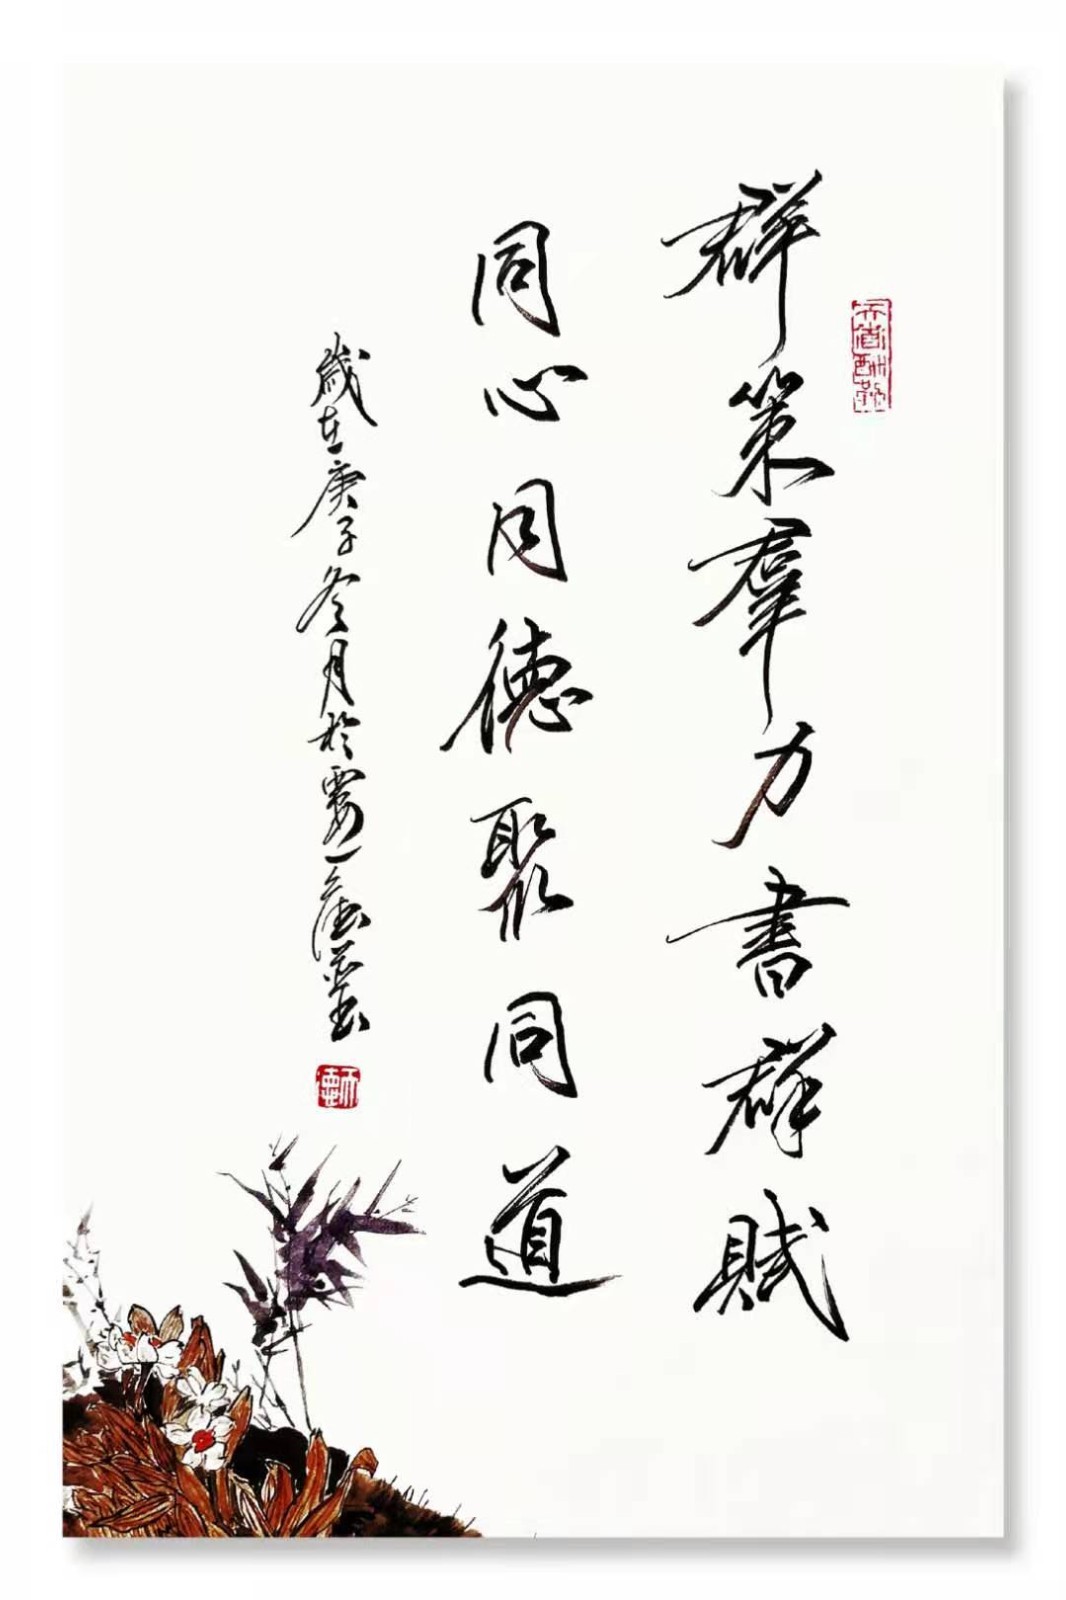 群策羣力書群賦
天道酬勤
同心同德聚同道
歲在庚子冬月於